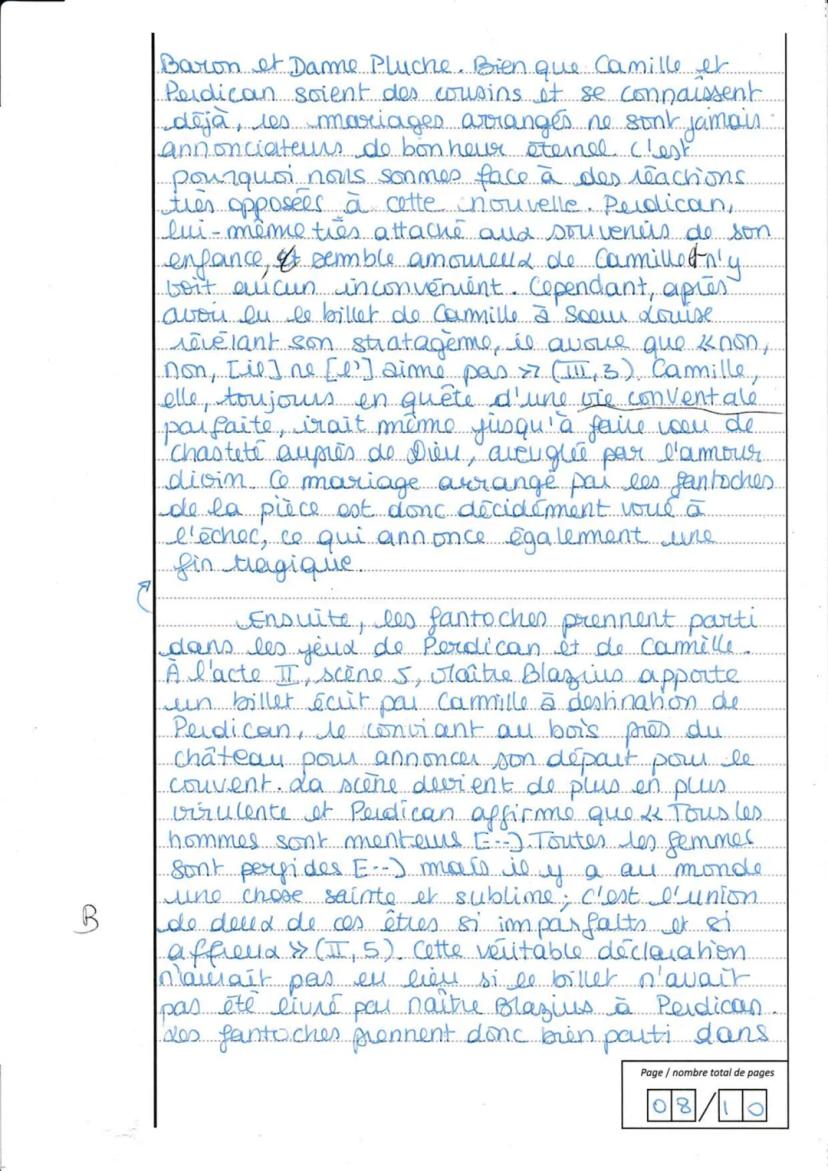 Baron et Dame Pluche. Bien que Camille et
Perdican soient des cousins et se connaissent
déjà, les mariages arrangés ne sont jamais
annonciateurs de bonheur éternel. C'est
pourquoi nous sommes face à des réactions
très opposées à cette nouvelle. Perdican,
lui-même très attaché aux souvenirs de son
enfance, semble amoureux de Camille et n'y
voit aucun inconvénient. Cependant, après
avoir lu le billet de Camille à Soeur Louise
révélant son stratagème, il avoue que « non,
non, [il] ne [l'] aime pas » (III, 3). Camille,
elle, toujours en quête d'une vie conventale
parfaite, irait même jusqu'à faire voeu de
chasteté auprès de Dieu, aveuglée par l'amour
divin. Ce mariage arrangé par les fantoches
de la pièce est donc décidément voué à
l'échec, ce qui annonce également une
fin tragique.
Ensuite, les fantoches prennent parti
dans les jeux de Perdican et de Camille.
À l'acte II, scène 5, Maître Blazius apporte
un billet écrit par Camille à destination de
Perdican, le conviant au bois près du
château pour annoncer son départ pour le
couvent. La scène devient de plus en plus
virulente et Perdican affirme que « Tous les
hommes sont menteurs [...]. Toutes les femmes
sont perfides [...] mais il y a au monde
une chose sainte et sublime ; c'est l'union
B de deux de ces êtres si imparfaits et si
affreux » (II, 5). Cette véritable déclaration
n'aurait pas eu lieu si le billet n'avait
pas été livré par Maître Blazius à Perdican.
Les fantoches prennent donc bien parti dans
Page / nombre total de pages
08/10